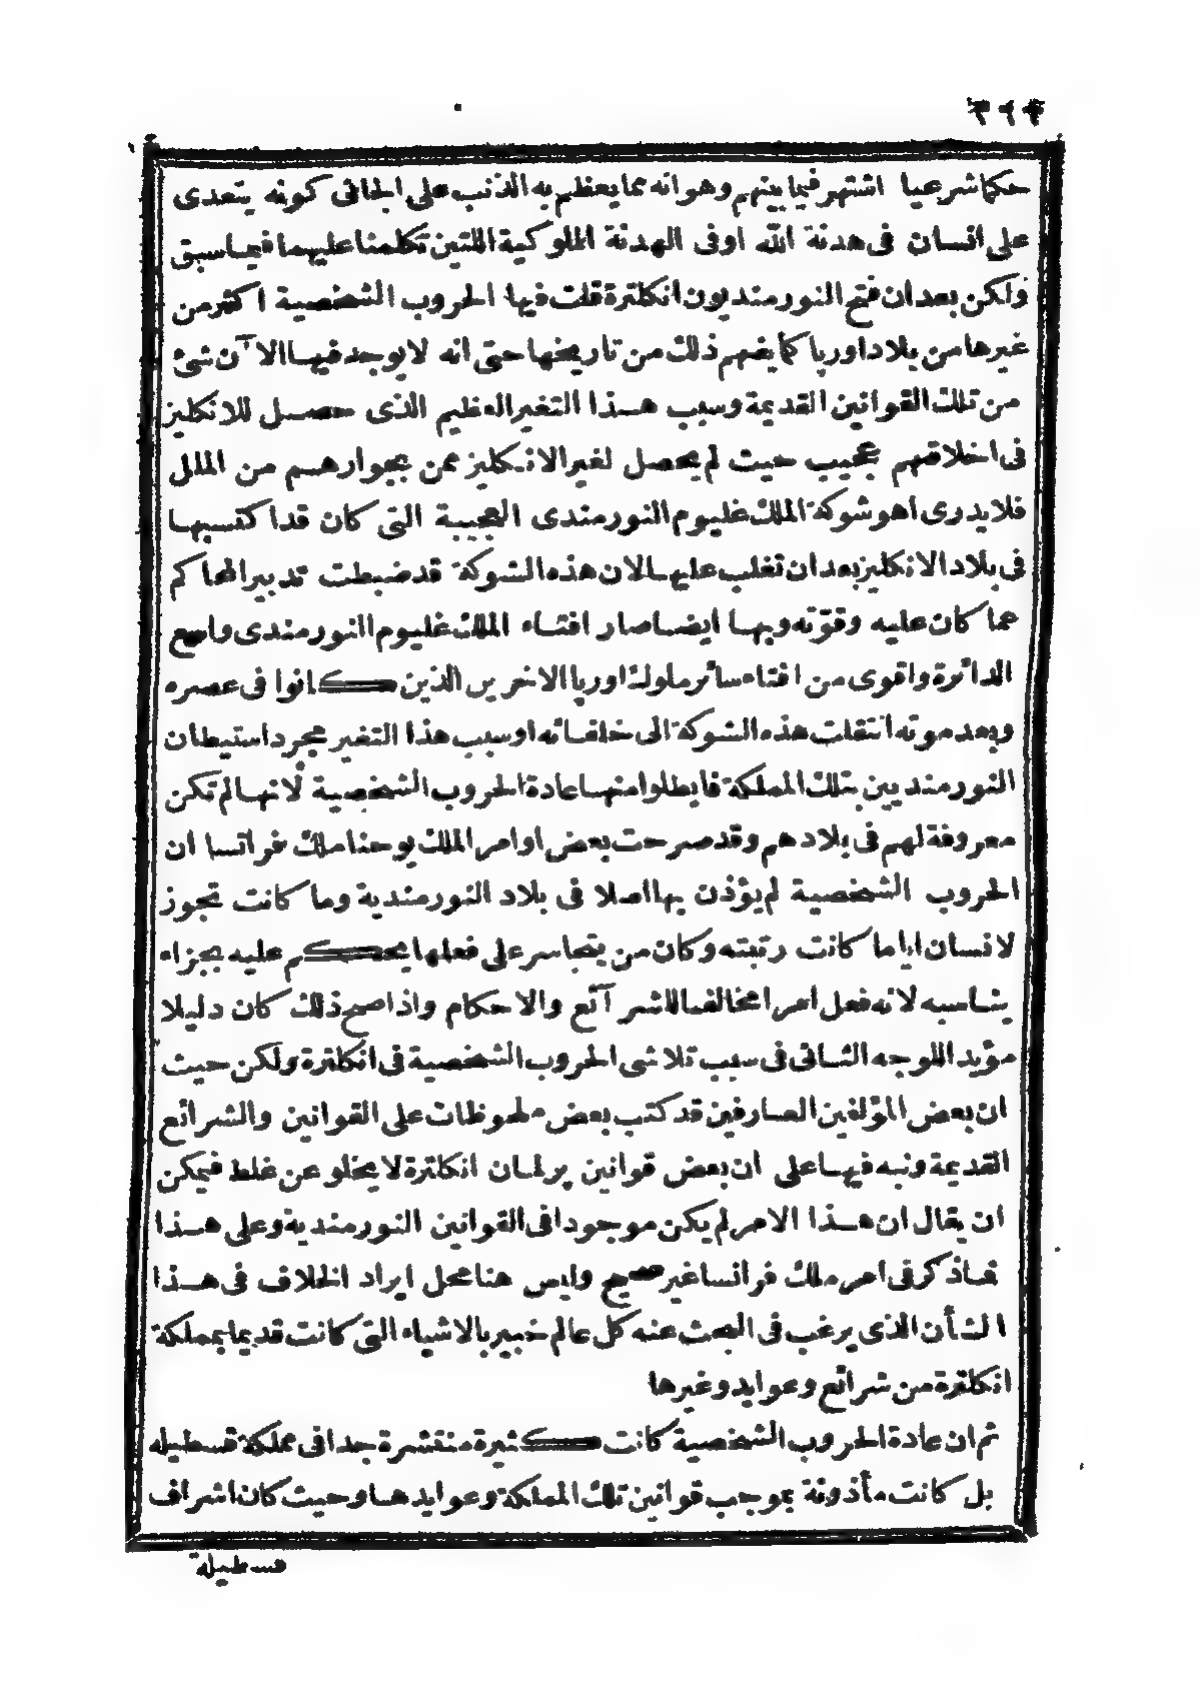 حكما شرعيا اشتهر فيما بينهم وهو انه مما يعظم به الذنب على الجانى كونه يتعدى
على انسان فى هدنة الله اوفى الهدنة الملوكية اللتين تكلمنا عليهما فيما سبق
ولكن بعد ان فتح النورمنديون انكلترة قلت فيها الحروب الشخصية اكثر من
غيرها من بلاد اوربا كما يفهم ذلك من تاريخها حتى انه لا يوجد فيها الاآن شئ
من تلك القوانين القديمة وسبب هذا التغير العظيم الذى حصل للانكليز
فى اخلاقهم عجيب حيث لم يحصل لغير الانكليز ممن بجوارهم من الملل
فلا يدرى اهو شوكة الملك غليوم النورمندى العجيبة التى كان قد اكتسبها
فى بلاد الانكليز بعد ان تغلب عليها لان هذه الشوكة قد ضبطت تدبير المحاكم
عما كان عليه وقوته وبها ايضا صار افتاء الملك غليوم النورمندى واسع
الدائرة واقوى من افتاء سائر ملوك اوربا الاخرين الذين كانوا فى عصره
وبعد موته انتقلت هذه الشوكة الى خلفائه او سبب هذا التغير مجرد استيطان
النورمنديين بتلك المملكة فابطلوا منها عادة الحروب الشخصية لانها لم تكن
معروفة لهم فى بلادهم وقد صرحت بعض اوامر الملك يوحنا ملك فرانسا ان
الحروب الشخصية لم يؤذن بها اصلا فى بلاد النورمندية وما كانت تجوز
لانسان ايا ما كانت رتبته وكان من يتجاسر على فعلها يحكم عليه بجزاء
يناسبه لانه فعل امرا مخالفا للشرآئع والاحكام واذا صح ذلك كان دليلا
مؤيد اللوجه الثانى فى سبب تلاشى الحروب الشخصية فى انكلترة ولكن حيث
ان بعض المؤلفين العارفين قد كتب بعض ملحوظات على القوانين والشرائع
القديمة ونبه فيها على ان بعض قوانين برلمان انكلترة لا يخلو عن غلط فيمكن
ان يقال ان هذا الامر لم يكن موجودا فى القوانين النورمندية وعلى هذا
فما ذكر فى امر ملك فرانسا غير صحيح وليس هنا محل ايراد الخلاف فى هذا
الشأن الذى يرغب فى البحث عنه كل عالم خبير بالاشياء التى كانت قديما بمملكة
انكلترة من شرائع وعوايد وغيرها
ثم ان عادة الحروب الشخصية كانت كثيرة منتشرة جدا فى مملكة قسطيله
بل كانت مأذونة بموجب قوانين تلك المملكة وعوايدها وحيث كان اشراف
قسطيلة